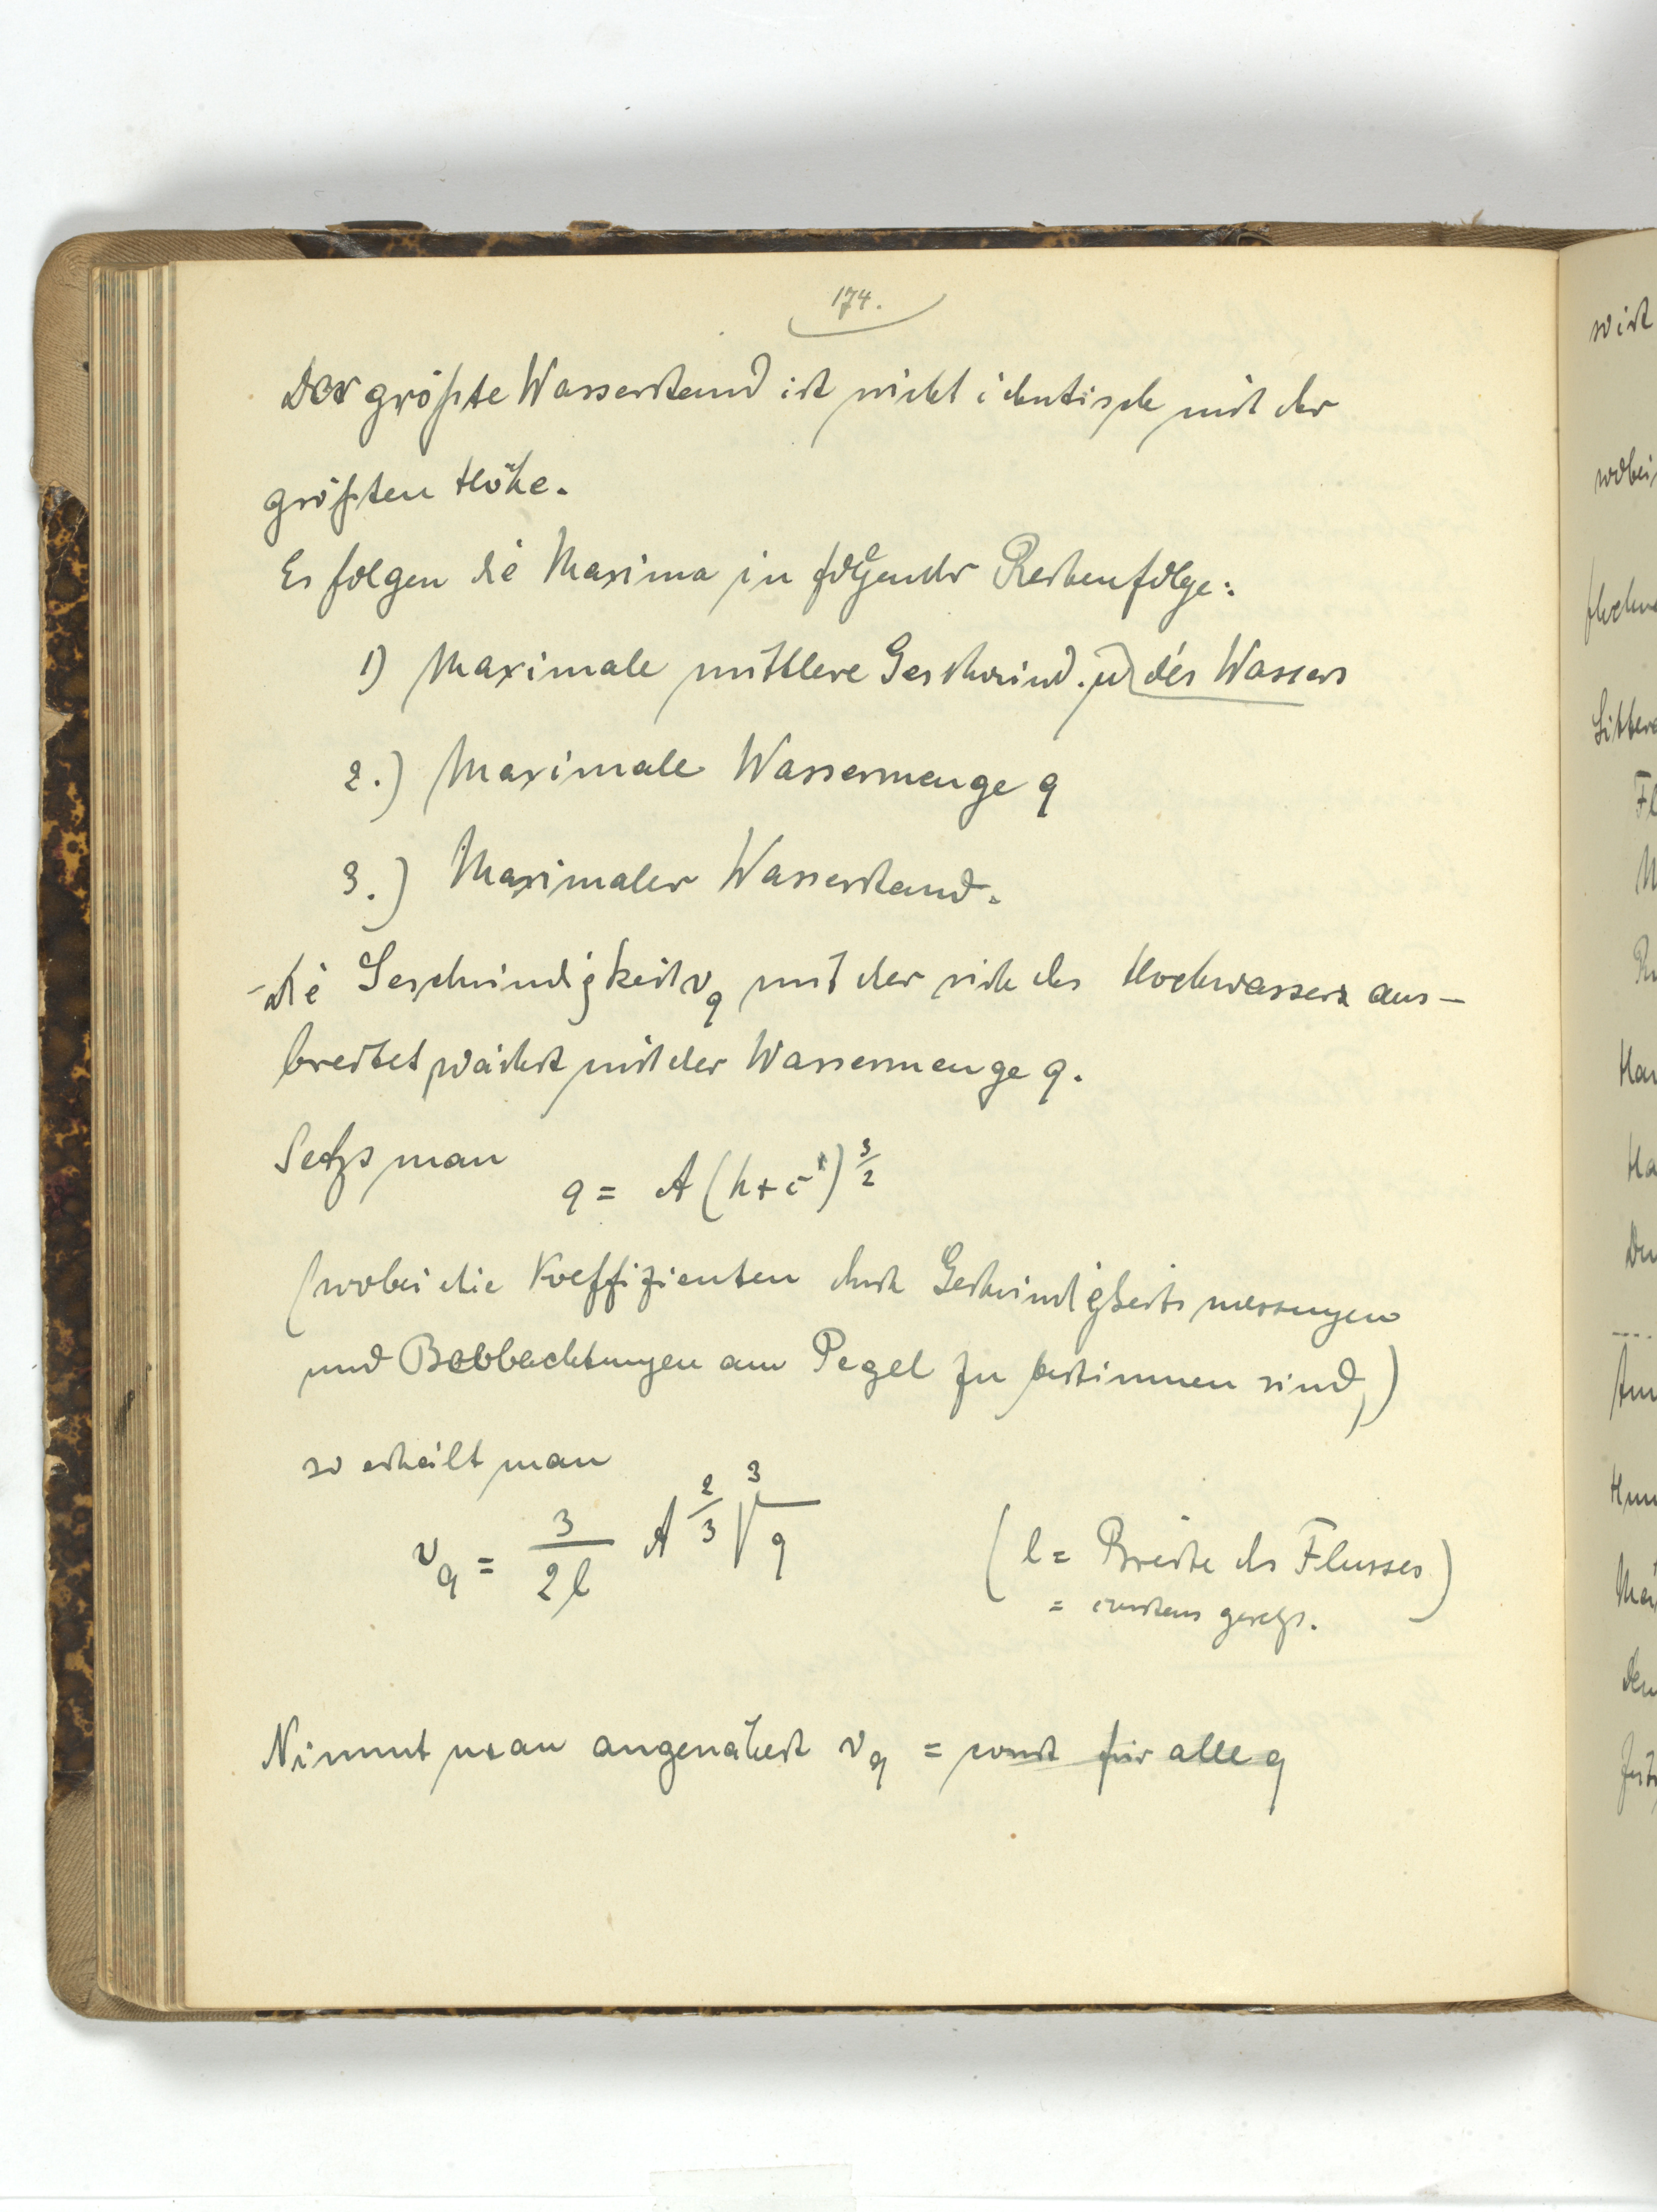 174.
Der größte Wasserstand ist nicht identisch mit der
größten Höhe.
Es folgen die Maxima in folgender Reihenfolge:
1) Maximale mittlere Geschwind. u des Wassers
2.) Maximale Wassermenge q
3.) Maximaler Wasserstand.
Die Geschwindigkeit v_q mit der sich das Hochwasser aus-
breitet wächst mit der Wassermenge q.
Setzt man
q = A (h + c)^{3/2}
(wobei die Koeffizienten durch Geschwindigkeitsmessungen
und Beobachtungen am Pegel zu bestimmen sind,)
so erhält man
v_q = \frac{3}{2l} A^{2/3} \sqrt[3]{q}
(l = Breite des Flusses)
= konstans gesetzt.
Nimmt man angenähert v_q = const für alle q
wird
wobei